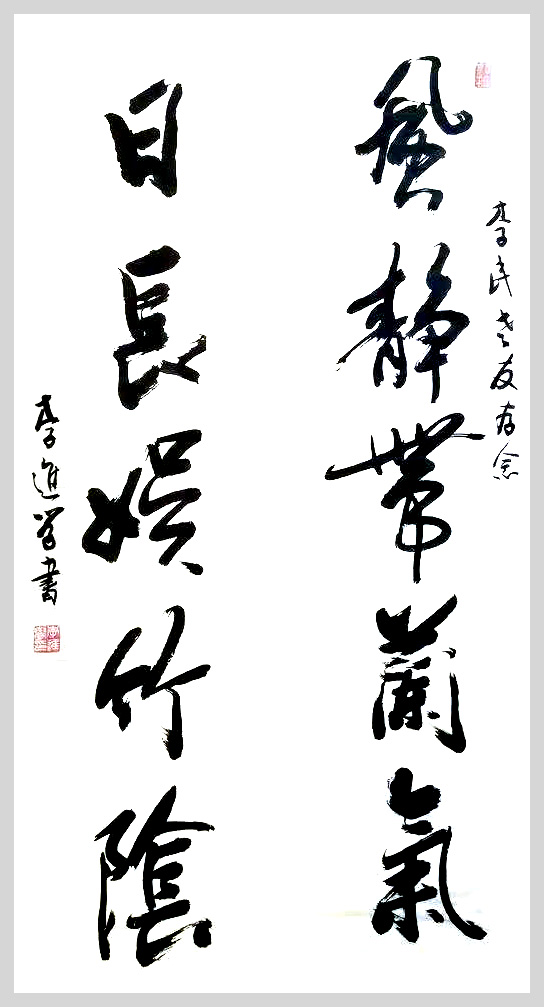 李民老友存念
風静帶蘭氣
日長娛竹陰
李進学書